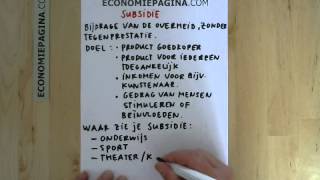 ECONOMIEPAGINA.COM
ECONOMIEPAGINA.COM
SUBSIDIE
BIJDRAGE VAN DE OVERHEID, ZONDER
TEGENPRESTATIE.
DOEL: • PRODUCT GOEDKOPER
• PRODUCT VOOR IEDEREEN
TOEGANKELIJK
• INKOMEN VOOR BIJV.
KUNSTENAAR.
• GEDRAG VAN MENSEN
STIMULEREN OF
BEÏNVLOEDEN.
WAAR ZIE JE SUBSIDIE:
- ONDERWIJS
- SPORT
- THEATER/K